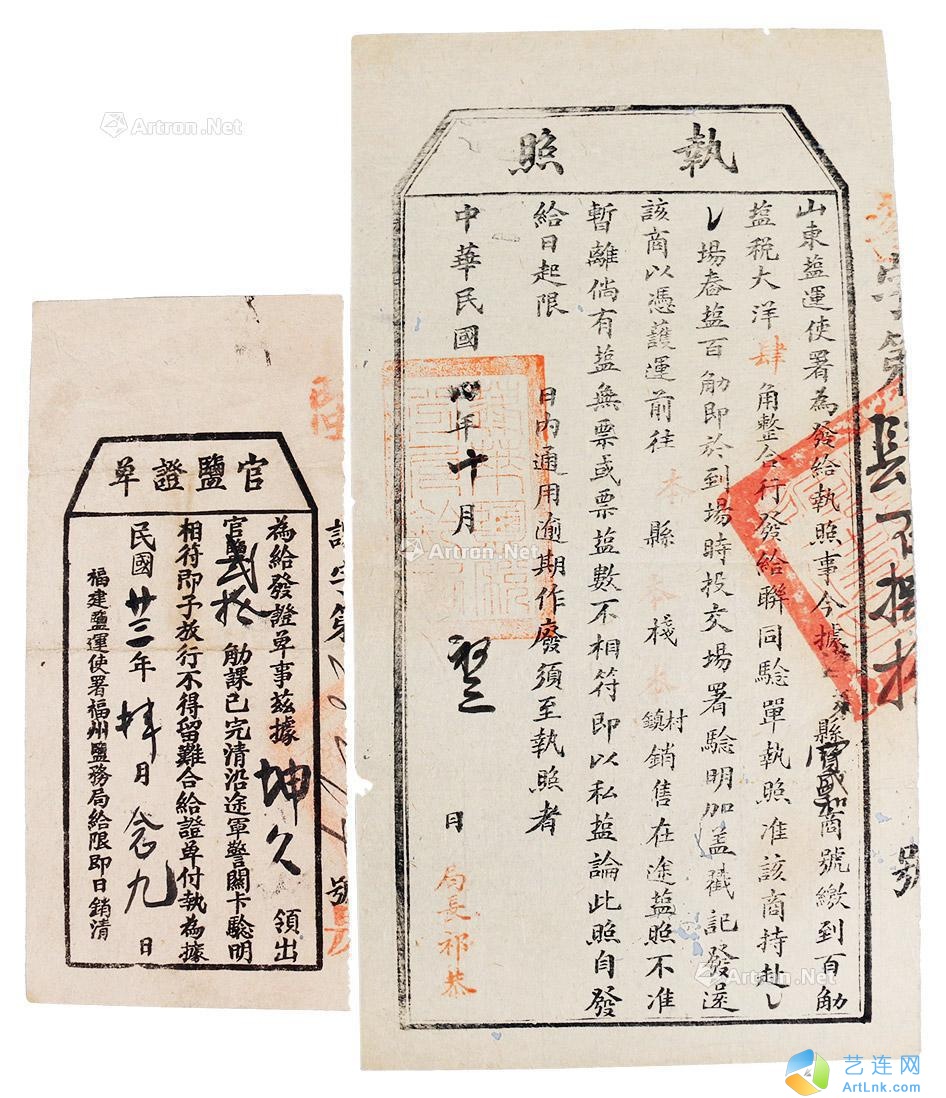 執照
山東塩運使署為發給執照事今據 縣 商號繳到百觔
塩税大洋肆角整合行發給聯同驗單執照准該商持赴
場舂塩百觔即於到場時投交場署驗明加盖戳記發還
該商以憑護運前往本縣本棧本鎮村銷售在途塩照不准
暫離倘有塩無票或票塩數不相符即以私塩論此照自發
給日起限 日內通用逾期作廢須至執照者
中華民國四年十月 日
局長祁恭
號
官鹽證單
為給發證單事茲據坤久領出
官鹽貳拾觔課已完清沿途軍警關卡驗明
相符即予放行不得留難合給證單付執為據
民國廿三年肆月念九日
福建鹽運使署福州鹽務局給限即日銷清
字第
號
Artron.Net
Artron.Net
Artron.Net
艺连网
ArtLnk.com